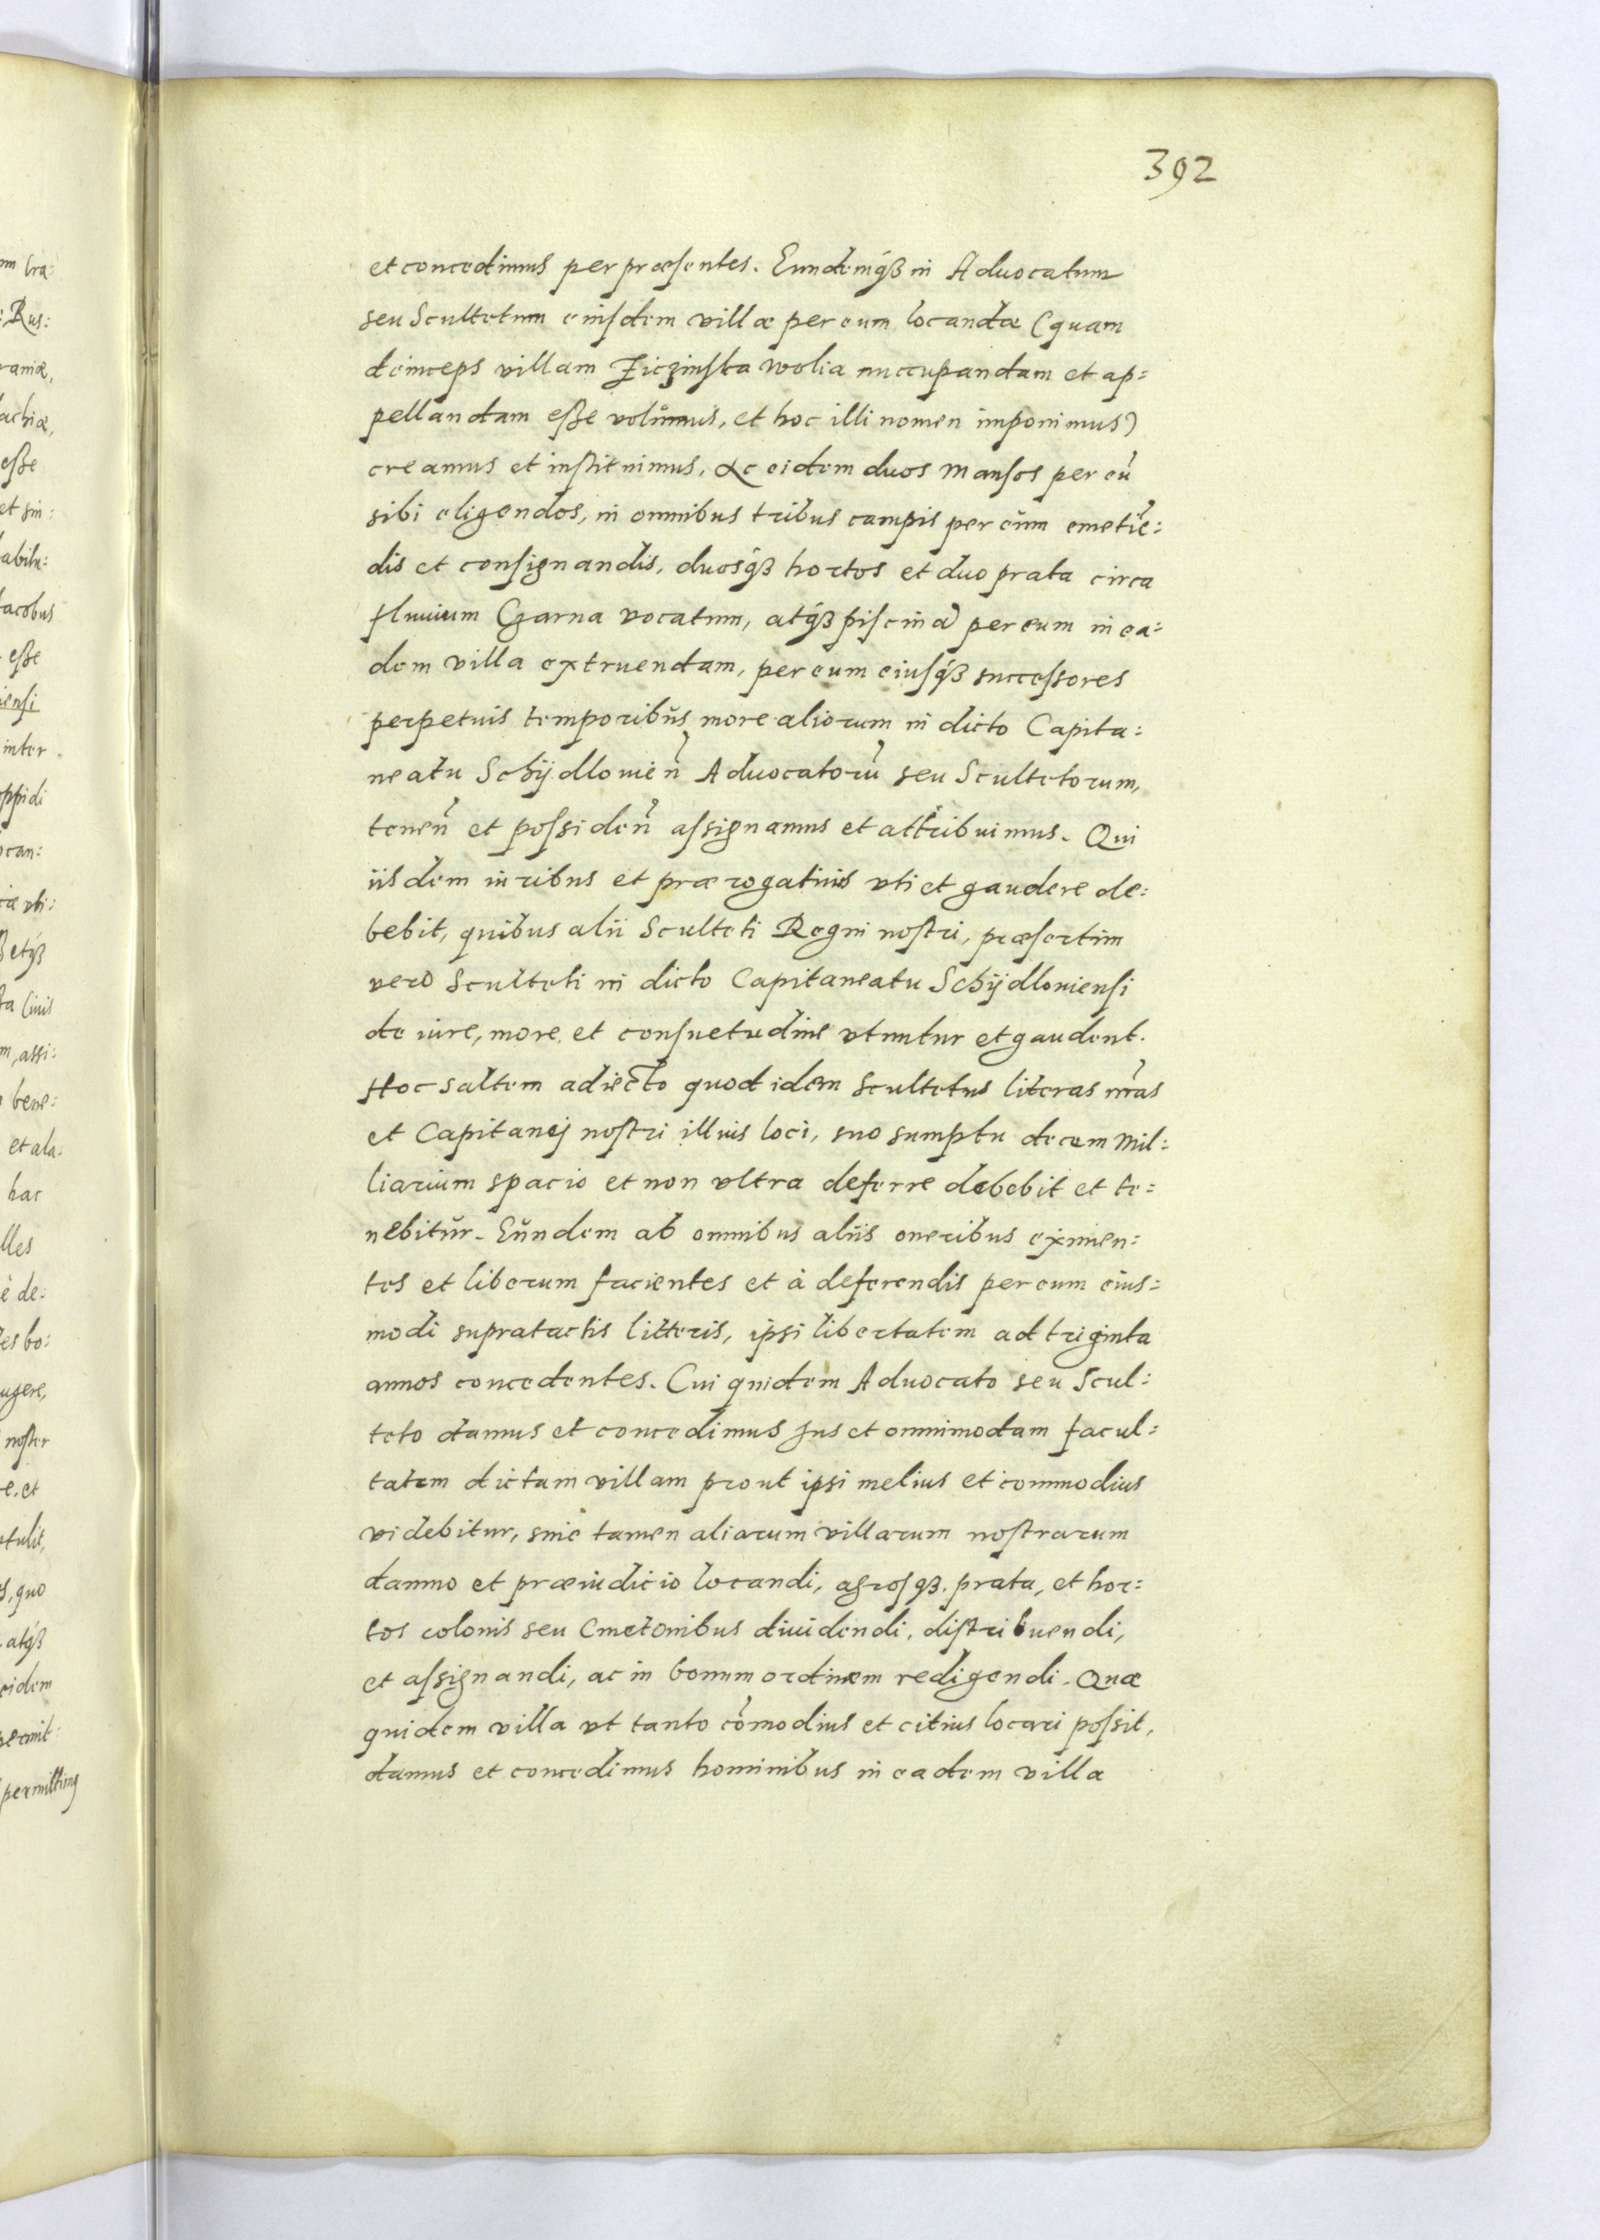 392
et concedimus per præsentes. Eundemq́ꝫ in Aduocatum
seu Scultetum eiusdem villæ per eum locandæ (quam
deinceps villam Ficzinska wolia nuccupandam et ap:
pellandam eße volŭmus, et hoc illi nomen imponimus)
creamus et instituimus, Ac eidem duos Mansos per eũ
sibi eligendos, in omnibus tribus campis per eŭm emetiẽ:
dis et consignandis, duosq́ꝫ hortos et duo prata circa
fluuium Czarna vocatum, atq́ꝫ piscinã per eum in ea:
dem villa extruendam, per eum eiusq́ꝫ successores
perpetuis temporibŭs more aliorum in dicto Capita:
neatu Schÿdlouieñ Aduocatorũ seu Scultetorum,
teneñ et possideñ assignamus et attribuimus. Qui
iisdem iuribus et prærogatiuis vti et gaudere de:
bebit, quibus alii Sculteti Regni nostri, præsertim
vero Sculteti in dicto Capitaneatu Schÿdlouiensi
de iure, more et consuetudine vtuntur et gaudent.
Hoc saltem adiecto quod idem Scultetus literas nr̃as
et Capitanej nostri illuis loci, suo sumptu decem Mil:
liarium spacio et non vltra deferre debebit et te:
nebitŭr. Eŭndem ab omnibus aliis oneribus eximen:
tes et liberum facientes et à deferendis per eum eius:
modi supratactis litteris, ipsi libertatem ad triginta
annos concedentes. Cui quidem Aduocato seu Scul:
teto damus et concedimus Jus et omnimodam facul:
tatem dictam villam prout ipsi melius et commodius
videbitur, sine tamen aliarum villarum nostrarum
damno et præiudicio locandi, agrosqꝫ. prata, et hor:
tos colonis seu Cmetonibus diuidendi, distribuendi,
et assignandi, ac in bonum ordinem redigendi. Quæ
quidem villa vt tanto com̃odius et citius locari possit,
damus et concedimus hominibus in eadem villa